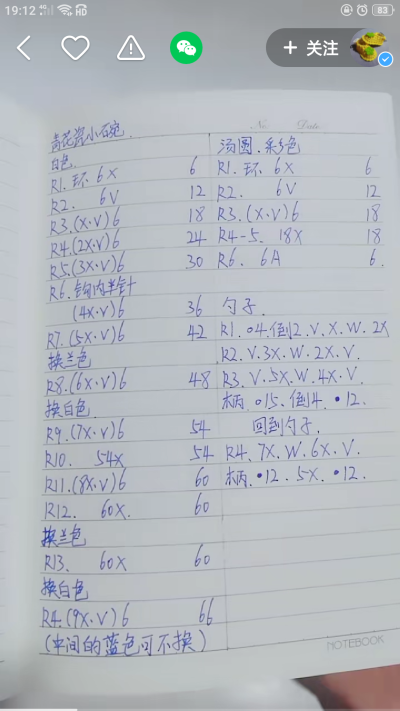 19:12
HD
83
+ 关注
No.
Date.
青花瓷小碗.
白色.
R1.环.6X 6
R2. 6V 12
R3.(X.V)6 18
R4.(2X.V)6 24
R5.(3X.V)6 30
R6.钩内半针
(4X.V)6 36
R7.(5X.V)6 42
换兰色
R8.(6X.V)6 48
换白色.
R9.(7X.V)6 54
R10. 54X 54
R11.(8X.V)6 60
R12. 60X. 60
换兰色
R13. 60X 60
换白色
R4.(9X.V)6 66
(中间的蓝色可不换)
汤圆.彩色
R1.环.6X 6
R2. 6V 12
R3.(X.V)6 18
R4-5. 18X 18
R6. 6A 6.
勺子.
R1.04.倒2.V.X.W.2X
R2.V.3X.W.2X.V.
R3.V.5X.W.4X.V.
木柄.015.倒4.•12.
回到勺子.
R4.7X.W.6X.V.
木柄.•12.5X.•12.
NOTEBOOK